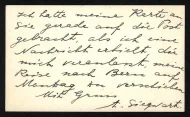 Ich hatte meine Karte an
Sie gerade auf die Post
gebracht als ich eine
Nachricht erhielt, die
mich veranlasst, meine
Reise nach Bern auf
Montag zu verschieben
Mit Gruss
A. Siegwart.